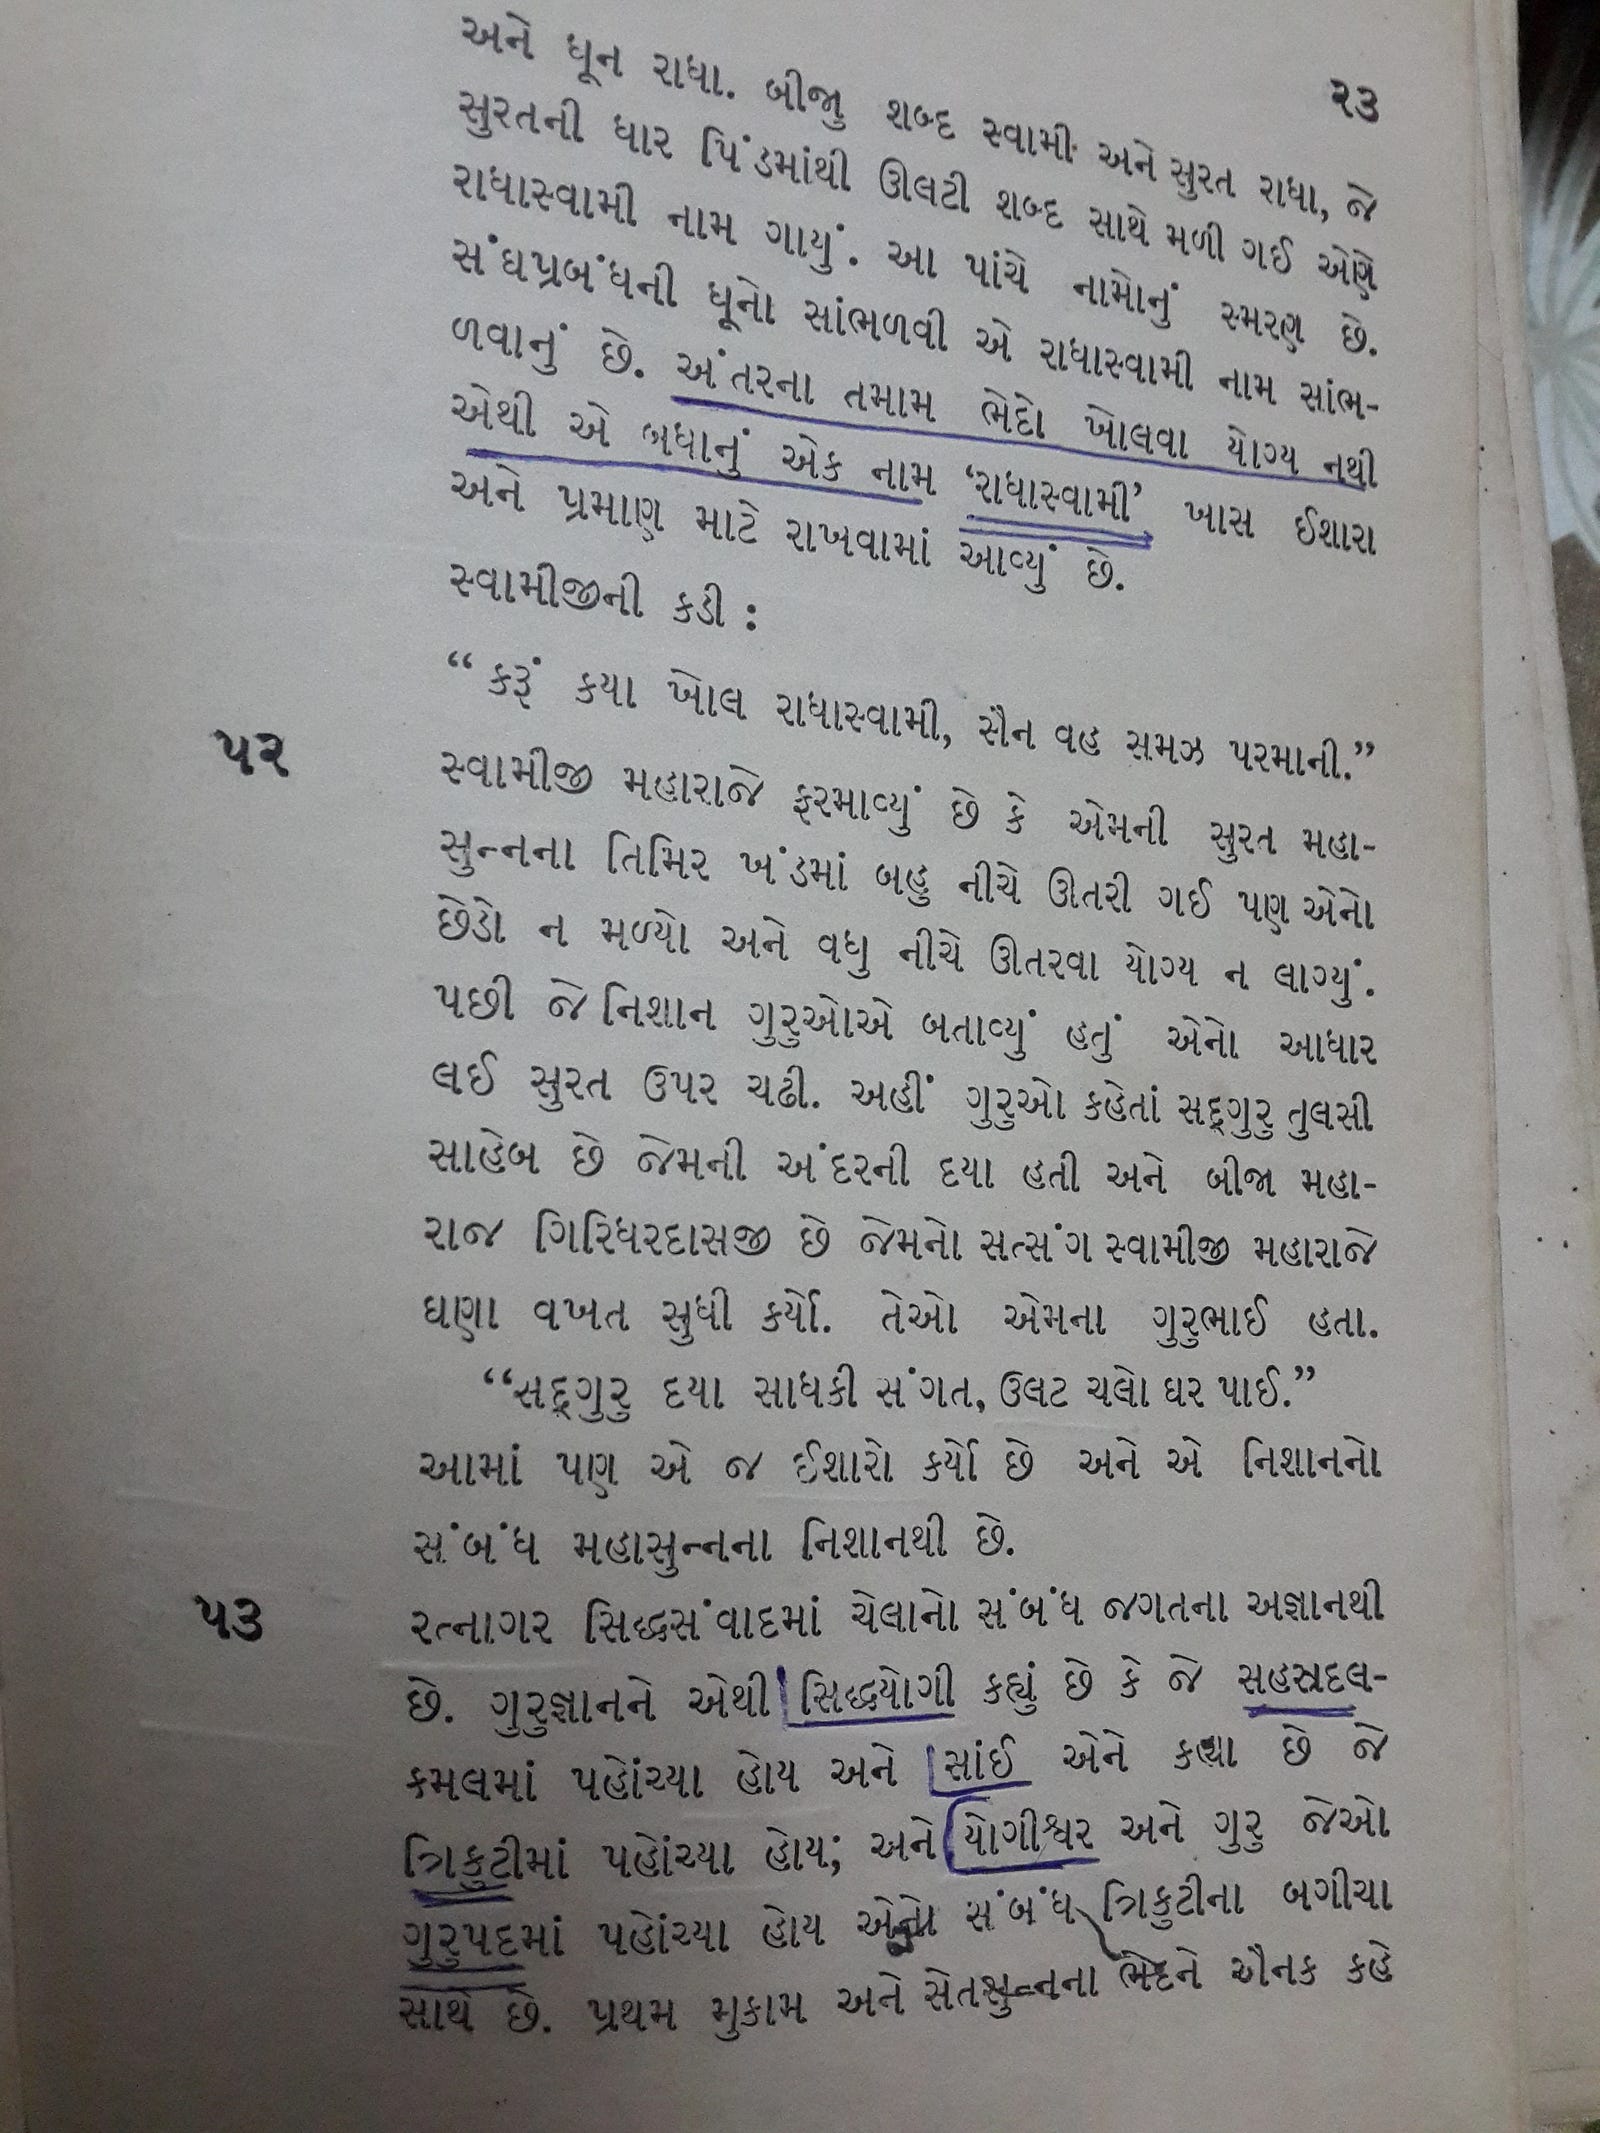 ૨૩
અને ધૂન રાધા. બીજુા શબ્દ સ્વામી અને સુરત રાધા, જે
સુરતની ધાર પિંડમાંથી ઊલટી શબ્દ સાથે મળી ગઈ એણે
રાધાસ્વામી નામ ગાયું. આ પાંચે નામોનું સ્મરણ છે.
સંઘપ્રબંધની ધૂનો સાંભળવી એ રાધાસ્વામી નામ સાંભ-
ળવાનું છે. અંતરના તમામ ભેદો ખોલવા યોગ્ય નથી
એથી એ બધાનું એક નામ ‘રાધાસ્વામી’ ખાસ ઈશારા
અને પ્રમાણ માટે રાખવામાં આવ્યું છે.
સ્વામીજીની કડી :
“ કરૂં કયા ખોલ રાધાસ્વામી, સૈન વહ સમઝ પરમાની.”
૫૨ સ્વામીજી મહારાજે ફરમાવ્યું છે કે એમની સુરત મહા-
સુન્નના તિમિર ખંડમાં બહુ નીચે ઊતરી ગઈ પણ એનો
છેડો ન મળ્યો અને વધુ નીચે ઊતરવા યોગ્ય ન લાગ્યું.
પછી જે નિશાન ગુરુઓએ બતાવ્યું હતું એનો આધાર
લઈ સુરત ઉપર ચઢી. અહીં ગુરુઓ કહેતાં સદ્ગુરુ તુલસી
સાહેબ છે જેમની અંદરની દયા હતી અને બીજા મહા-
રાજ ગિરિધરદાસજી છે જેમનો સત્સંગ સ્વામીજી મહારાજે
ઘણા વખત સુધી કર્યો. તેઓ એમના ગુરુભાઈ હતા.
“સદ્ગુરુ દયા સાધકી સંગત, ઉલટ ચલો ઘર પાઈ.”
આમાં પણ એ જ ઈશારો કર્યો છે અને એ નિશાનનો
સંબંધ મહાસુન્નના નિશાનથી છે.
૫૩ રત્નાગર સિદ્ધસંવાદમાં ચેલાનો સંબંધ જગતના અજ્ઞાનથી
છે. ગુરુજ્ઞાનને એથી સિદ્ધયોગી કહ્યું છે કે જે સહસ્રદલ-
કમલમાં પહોંચ્યા હોય અને સાંઈ એને કહ્યા છે જે
ત્રિકુટીમાં પહોંચ્યા હોય; અને યોગીશ્વર અને ગુરુ જેઓ
ગુરુપદમાં પહોંચ્યા હોય એનો સંબંધ ત્રિકુટીના બગીચા
સાથે છે. પ્રથમ મુકામ અને સેતસુન્નના ભેદને ઐનક કહે